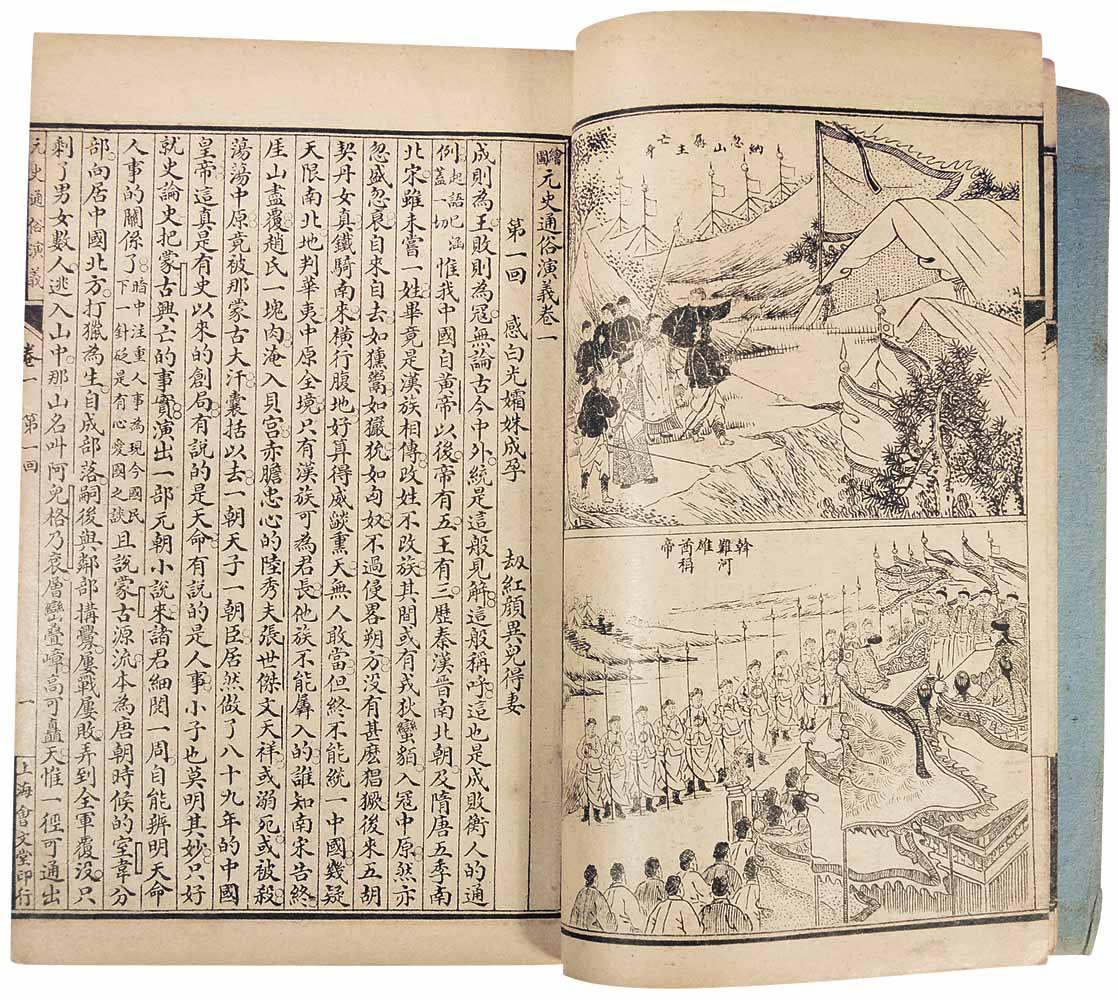 納忽山孱主亡身
斡難河雄酋稱帝
繪圖元史通俗演義卷一
第一回　感白光孀姝成孕　劫紅顏異兒得妻
成則為王敗則為寇無論古今中外統是這般見解這般稱呼這也是成敗衡人的通
例起語已涵蓋一切惟我中國自黃帝以後帝有五王有三歷秦漢晉南北朝及隋唐五季南
北宋雖未嘗一姓畢竟是漢族相傳改姓不改族其間或有戎狄蠻貊入寇中原然亦
忽盛忽衰自來自去如獯鬻如玁狁如匈奴不過侵畧朔方沒有甚麽猖獗後來五胡
契丹女真鐵騎南來橫行腹地好算得威燄熏天無人敢當但終不能統一中國幾疑
天限南北地判華夷中原全境只有漢族可為君長他族不能羼入的誰知南宋告終
厓山盡覆趙氏一塊肉淹入貝宮赤膽忠心的陸秀夫張世傑文天祥或溺死或被殺
蕩蕩中原竟被那蒙古大汗囊括以去一朝天子一朝臣居然做了八十九年的中國
皇帝這真是有史以來的創局有說的是天命有說的是人事小子也莫明其妙只好
就史論史把蒙古興亡的事實演出一部元朝小說來諸君細閱一周自能辨明天命
人事的關係了暗中注重人事為現今國民下一針砭是有心愛國之談且說蒙古源流本為唐朝時候的室韋分
部向居中國北方打獵為生自成部落嗣後與鄰部搆釁屢戰屢敗弄到全軍覆沒只
剩了男女數人逃入山中那山名叫阿兒格乃袞層巒疊嶂高可矗天惟一徑可通出
元史通俗演義　卷一　第一回　一　上海會文堂印行